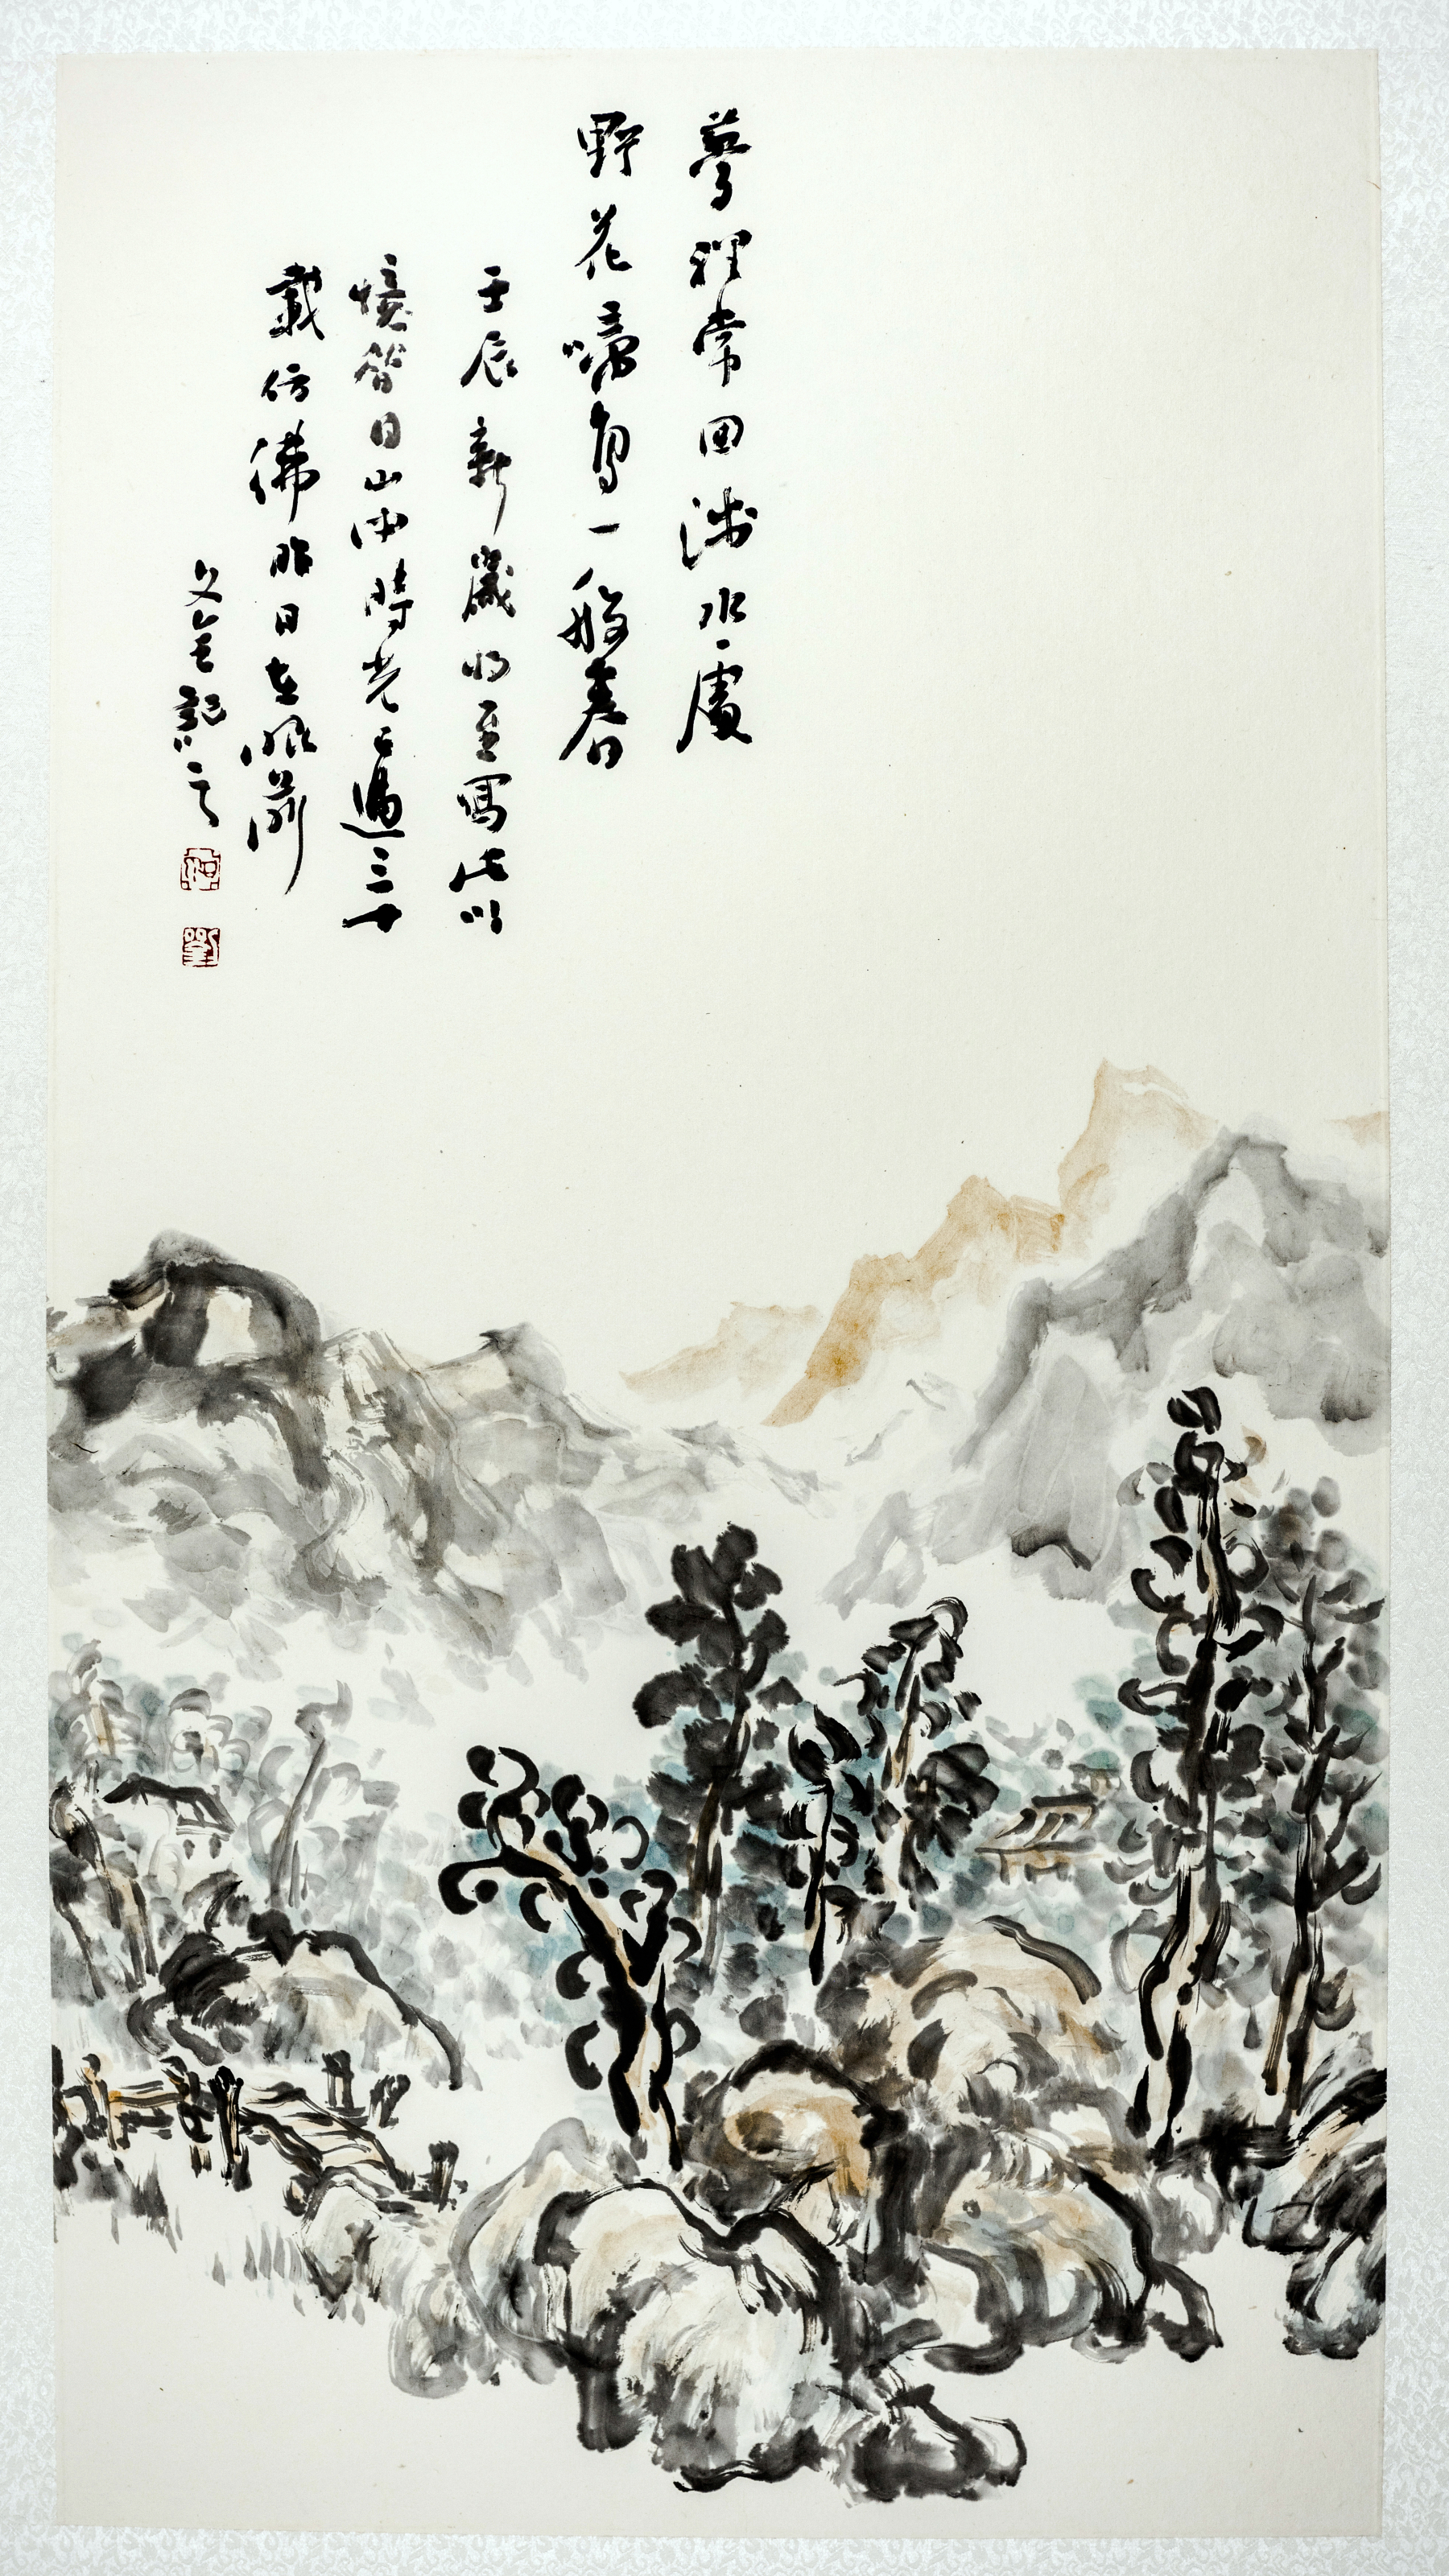 夢裡常回淺水處
野花啼鳥一般春
壬辰新歲將至寫此以
憶昔日山中時光已過三十
載彷彿昨日在眼前
文金記之
劉